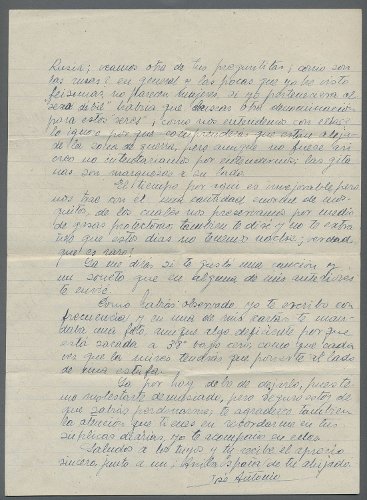 Rusia; veamos otra de tus preguntitas; como son
las rusas? en general y las pocas que yo he visto
feisimas no parecen mujeres, si yo perteneciera al
"sexo debil" habria que darlas otra denominacion
para estos seres; como nos entendemos con ellas?
lo ignoro por que comprenderas que estan alejadas
de la zona de guerra, pero aunque no fuese asi
creo no intentariamos por entendernos las gita
nas son marquesas a su lado.
El tiempo por aqui es inmejorable pero
nos trae con el una cantidad enorme de mos-
quitos, de los cuales nos preservamos por medio
de gasas protectoras tambien te dire y no te extra
ñe que estos dias no tenemos noche; verdad
que es raro?
Ya me diras si te gusto una cancion y
un soneto que en alguna de mis anteriores
te envie.
Como habrás observado, yo te escribo con
frecuencia y en una de mis cartas te man-
daba una foto aunque algo deficiente por que
esta sacada a 38º bajo cero, como que cada
vez que la mires tendrás que ponerte al lado
de una estufa.
Ya por hoy debo de dejarlo, pues te
molestaré demasiado, pero seguro estoy de
que sabrás perdonarme; te agradezco tambien
la atencion que tienes en recordarme en tus
suplicas diarias, yo te acompaño en ellas.
Saludos a los tuyos y tu recibe el aprecio
sincero junto a un ¡Arriba España! de tu ahijado
José Antonio